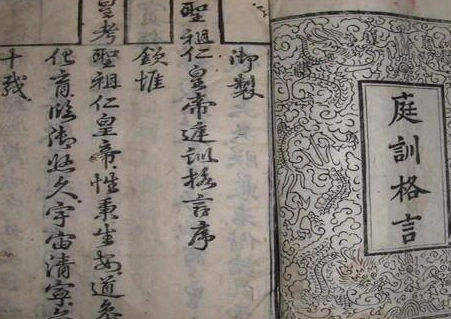 庭訓格言
御製
聖祖仁皇帝庭訓格言序
欽惟
皇考聖祖仁皇帝性秉生安道參
化育臨御悠久宇宙清寧
十載